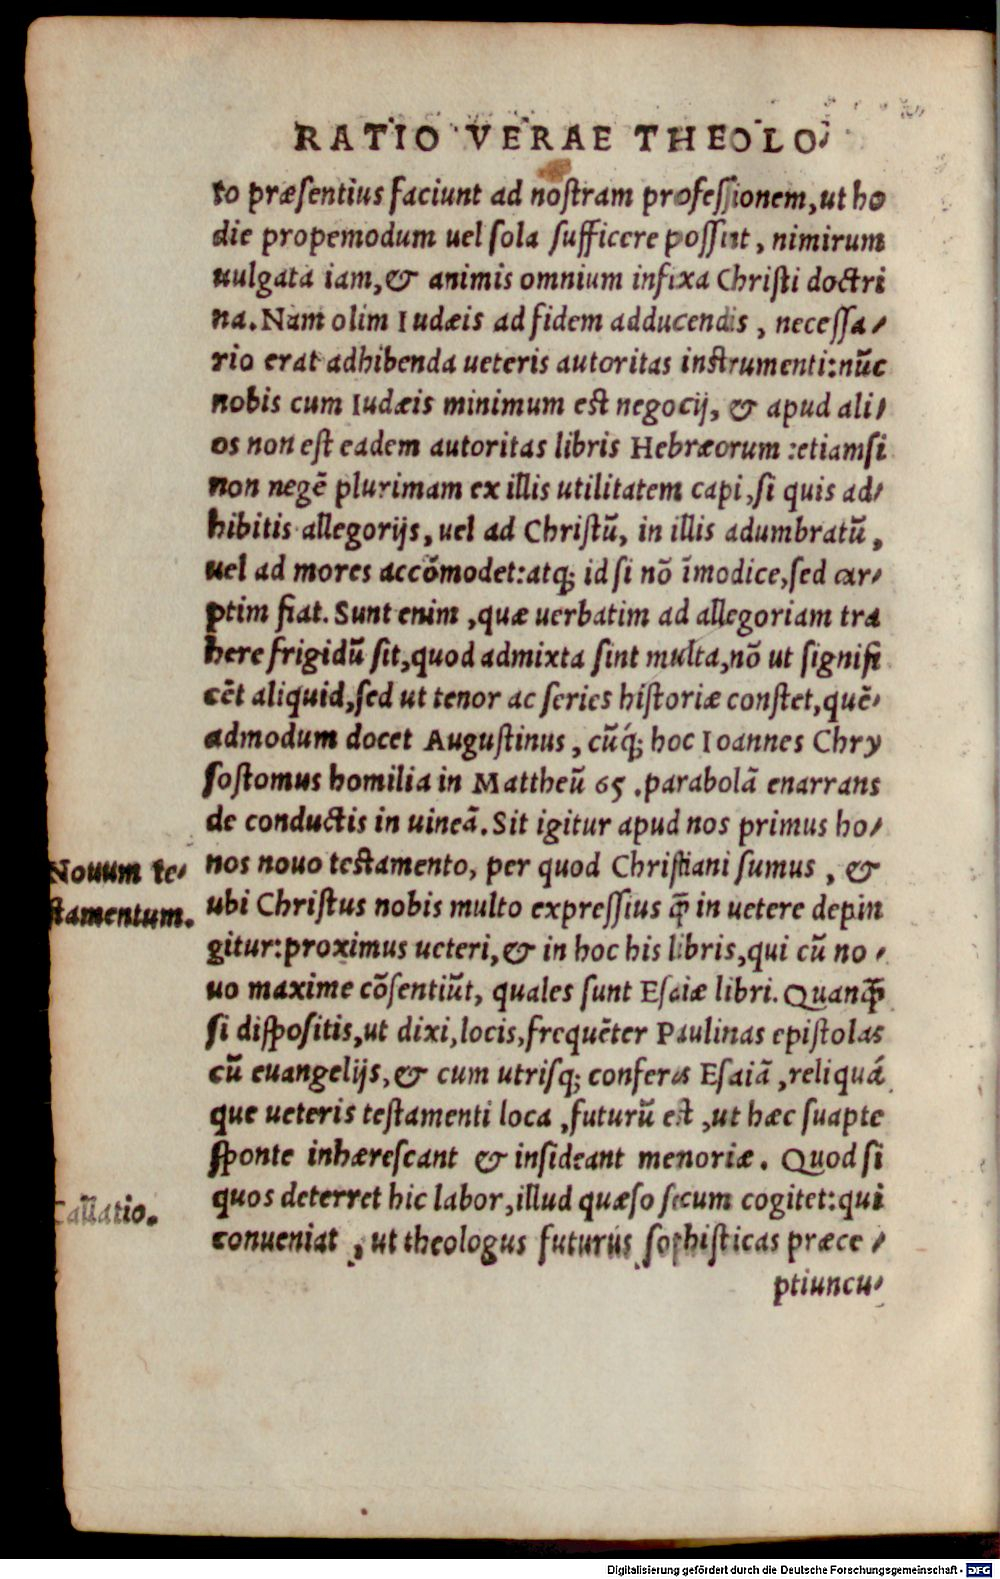 RATIO VERAE THEOLO-
to præsentius faciunt ad nostram professionem, ut ho
die propemodum uel sola sufficere possint, nimirum
uulgata iam, & animis omnium infixa Christi doctri
na. Nam olim Iudæis ad fidem adducendis, necessa-
rio erat adhibenda ueteris autoritas instrumenti: nũc
nobis cum Iudæis minimum est negocij, & apud ali-
os non est eadem autoritas libris Hebræorum: etiamsi
non negẽ plurimam ex illis utilitatem capi, si quis ad-
hibitis allegorijs, uel ad Christũ, in illis adumbratũ,
uel ad mores accõmodet: atq; id si nõ ĩmodice, sed car-
ptim fiat. Sunt enim, quæ uerbatim ad allegoriam tra
here frigidũ sit, quod admixta sint multa, nõ ut signifi
cẽt aliquid, sed ut tenor ac series historiæ constet, quẽ-
admodum docet Augustinus, cũq́; hoc Ioannes Chry
sostomus homilia in Mattheũ 65. parabolã enarrans
de conductis in uineã. Sit igitur apud nos primus ho-
Nouum te-
stamentum.
nos nouo testamento, per quod Christiani sumus, &
ubi Christus nobis multo expressius q̃ in uetere depin
gitur: proximus ueteri, & in hoc his libris, qui cũ no-
uo maxime cõsentiũt, quales sunt Esaiæ libri. Quanq̃
si dispositis, ut dixi, locis, frequẽter Paulinas epistolas
cũ euangelijs, & cum utrisq; conferes Esaiã, reliquá
que ueteris testamenti loca, futurũ est, ut hæc suapte
sponte inhærescant & insideant menoriæ. Quod si
Callatio.
quos deterret hic labor, illud quæso secum cogitet: qui
conueniat, ut theologus futurus sophisticas præce-
ptiuncu-
Digitalisierung gefördert durch die Deutsche Forschungsgemeinschaft - DFG